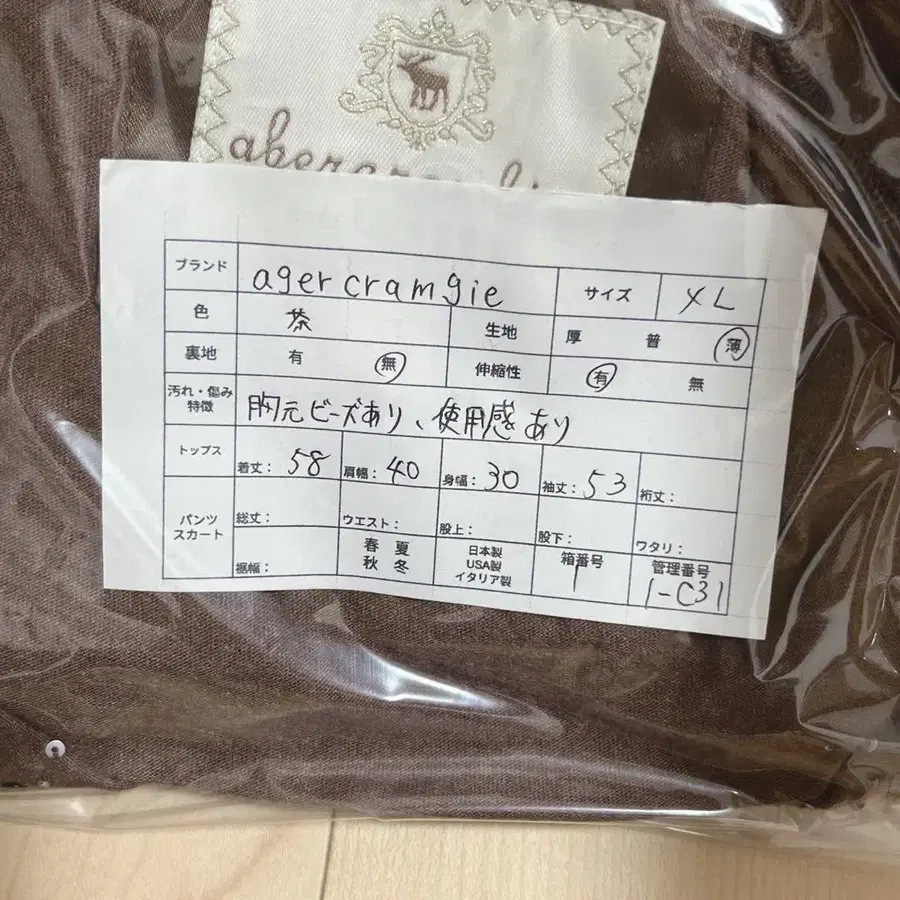 ブランド agercramgie サイズ XL
色 茶 生地 厚 普 薄
裏地 有 無 伸縮性 有 無
汚れ・傷み 特徴 胸元ビーズあり、使用感あり
トップス 着丈: 58 肩幅: 40 身幅: 30 袖丈: 53 裄丈:
パンツ スカート 総丈: ウエスト: 股上: 股下: ワタリ:
裾幅: 春 夏 秋 冬 日本製 USA製 イタリア製 箱番号 1 管理番号 1-C31